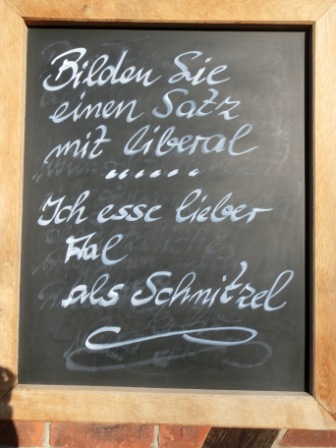 Bilden Sie
einen Satz
mit liberal
" " " " " "
Ich esse lieber
Aal
als Schnitzel